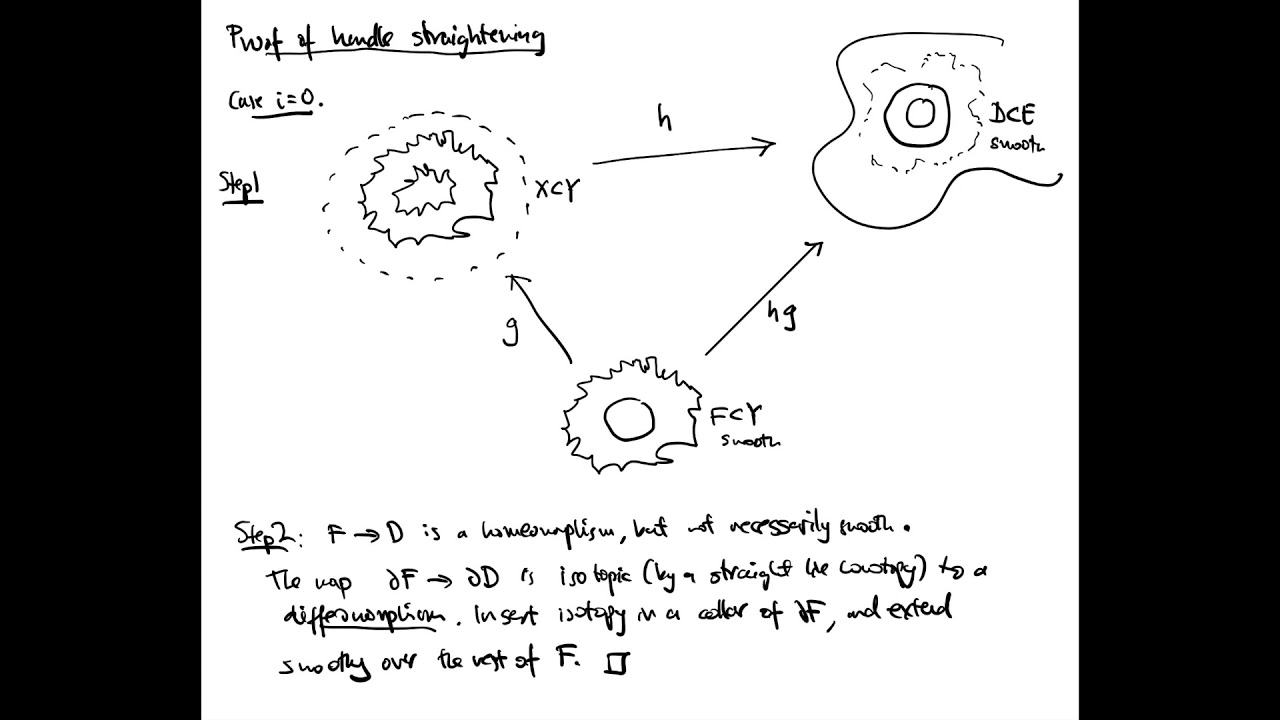 Proof of handle straightening
Case i=0.
h
D⊂E
smooth
Step1
X⊂Y
g
hg
F⊂Y
smooth
Step2: F → D is a homeomorphism, but not necessarily smooth.
The map ∂F → ∂D is isotopic (by a straight line homotopy) to a
diffeomorphism. Insert isotopy in a collar of ∂F, and extend
smoothly over the rest of F. □